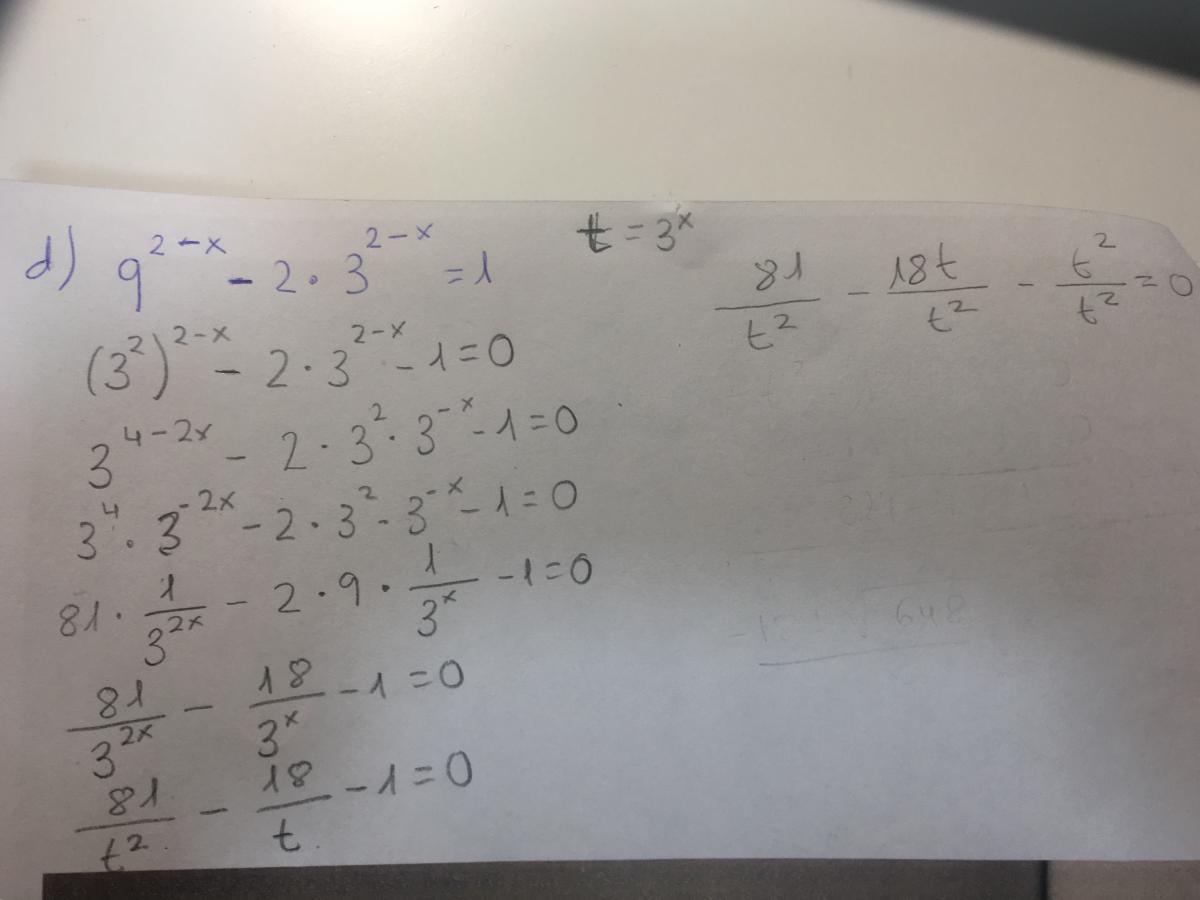 d) 9^{2-x} - 2 · 3^{2-x} = 1
(3^2)^{2-x} - 2 · 3^{2-x} - 1 = 0
3^{4-2x} - 2 · 3^2 · 3^{-x} - 1 = 0
3^4 · 3^{-2x} - 2 · 3^2 · 3^{-x} - 1 = 0
81 · 1/3^{2x} - 2 · 9 · 1/3^x - 1 = 0
81/3^{2x} - 18/3^x - 1 = 0
81/t^2 - 18/t - 1 = 0
t = 3^x
81/t^2 - 18t/t^2 - t^2/t^2 = 0
648